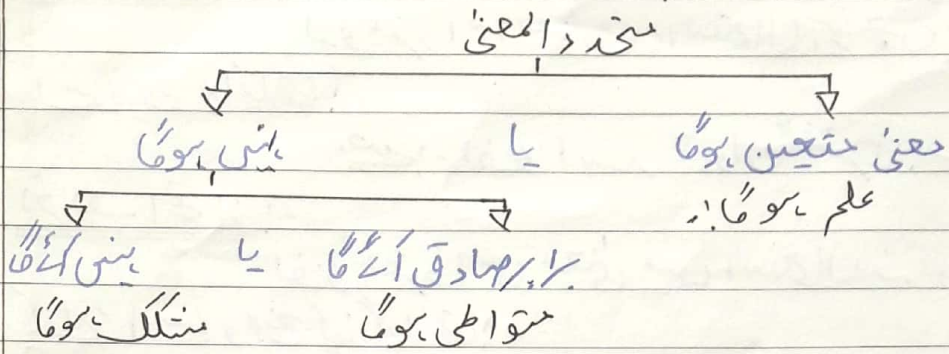 متحد المعنیٰ
معنیٰ متعین ہوگا یا نہیں ہوگا
علم ہوگا!۔
برابر صادق آئے گا یا نہیں آئے گا
متواطی ہوگا مشکک ہوگا